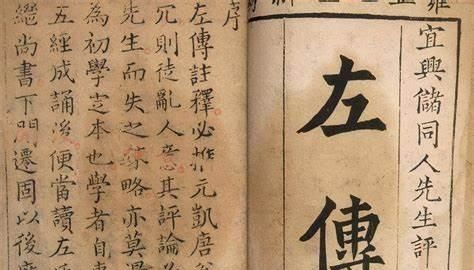 宜興儲同人先生評
左傳
序
左傳註釋必推元凱唐
冗則徒亂人意其評論
先生而失之略亦莫
為初學定本也學者自
五經成誦後便當讀左
繼尚書下開遷固以後